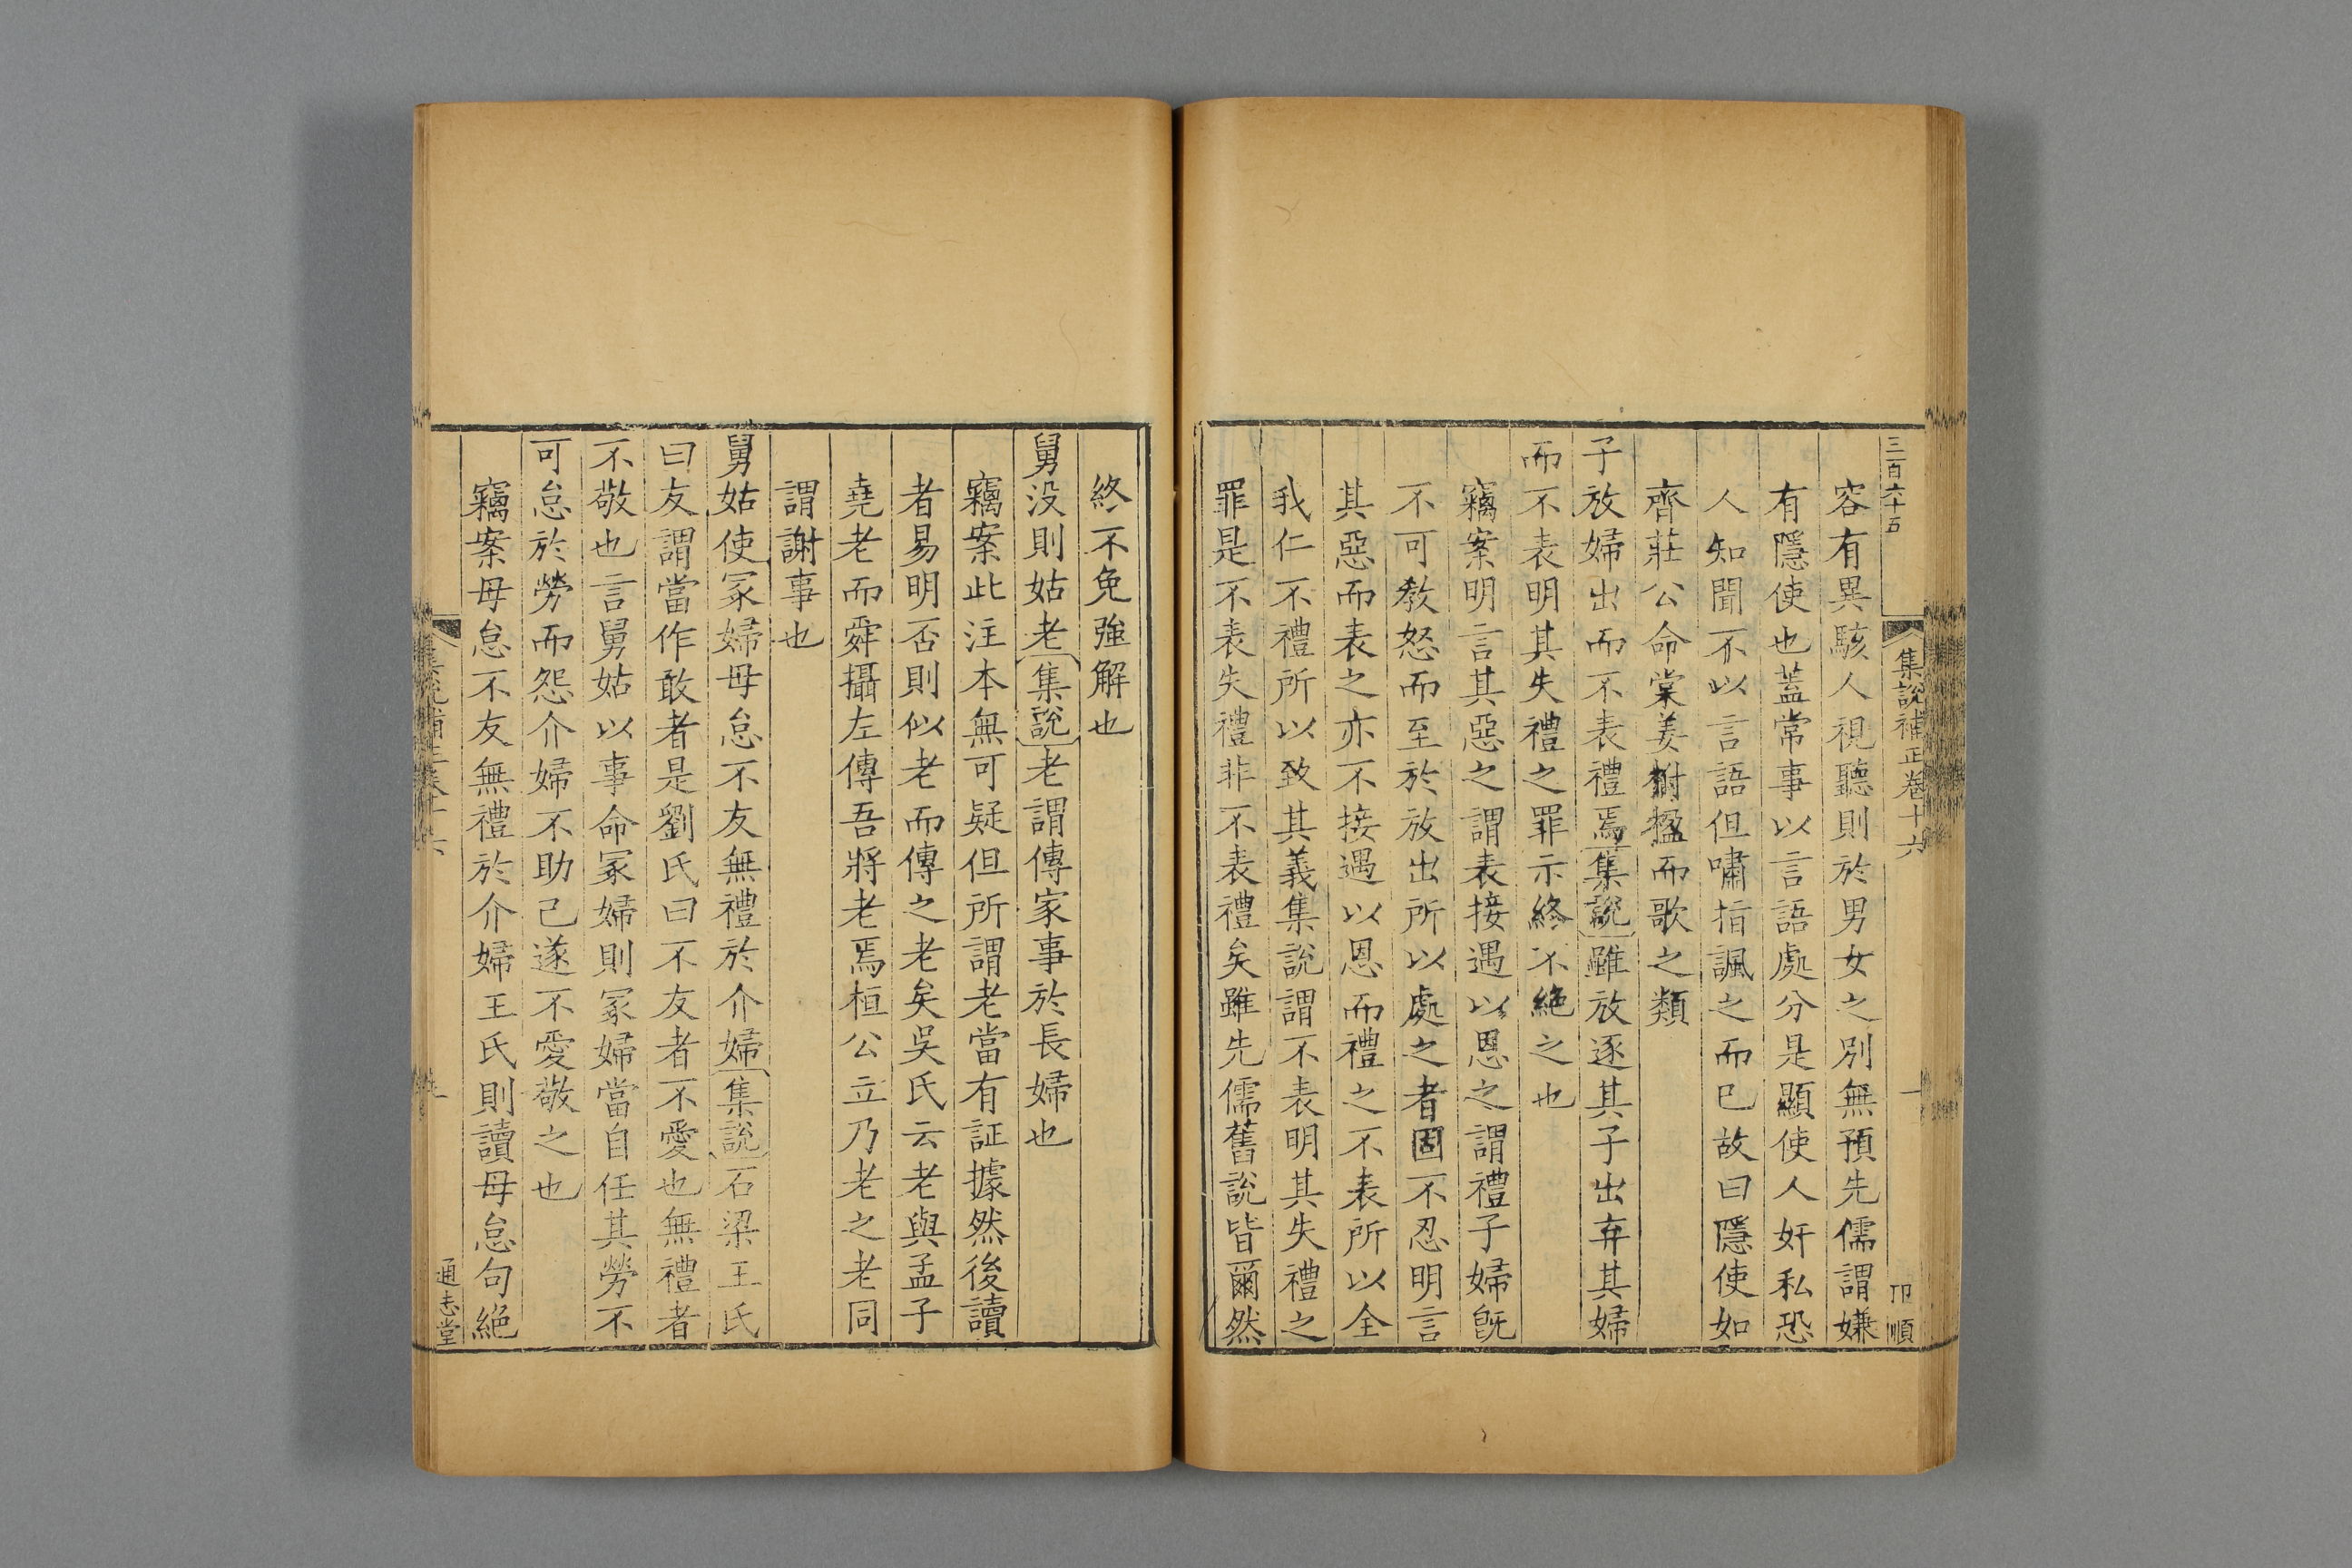 三百六十五
集說補正卷十六
一
卭順
容有異駭人視聽則於男女之別無預先儒謂嫌
有隱使也蓋常事以言語處分是顯使人奸私恐
人知聞不以言語但嘯指諷之而已故曰隱使如
齊莊公命棠姜拊楹而歌之類
子放婦出而不表禮焉集說雖放逐其子出弃其婦
而不表明其失禮之罪示終不絕之也
竊案明言其惡之謂表接遇以恩之謂禮子婦旣
不可敎怒而至於放出所以處之者固不忍明言
其惡而表之亦不接遇以恩而禮之不表所以全
我仁不禮所以致其義集說謂不表明其失禮之
罪是不表失禮非不表禮矣雖先儒舊說皆爾然
終不免強解也
舅没則姑老集說老謂傳家事於長婦也
竊案此注本無可疑但所謂老當有証據然後讀
者易明否則似老而傳之老矣吳氏云老與孟子
堯老而舜攝左傳吾將老焉桓公立乃老之老同
謂謝事也
舅姑使冢婦毋怠不友無禮於介婦集說石梁王氏
曰友謂當作敢者是劉氏曰不友者不愛也無禮者
不敬也言舅姑以事命冢婦則冢婦當自任其勞不
可怠於勞而怨介婦不助己遂不愛敬之也
竊案毋怠不友無禮於介婦王氏則讀毋怠句絕
集說補正卷十六
通志堂